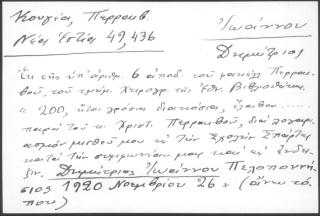 Κουγέα, Περραιβ.
Νέα Ἑστία 49, 436
Ἰωάννου
Δημήτριος
Ἐκ τῆς ὑπ' ἀριθμ. 6 ἀποδ. τοῦ φακέλλ. Περραι-
βοῦ, τοῦ τμήμ. Χειρογρ. τῆς Ἐθν. Βιβλιοθήκης.
« 200, ἤτοι γρόσια διακόσια, ἔλαβον
παρὰ τοῦ κ. Χριστ. Περραιβοῦ, διὰ λογαρι-
ασμὸν μισθοῦ μου εἰς τὴν Σχολὴν Σπάρτης
κατὰ τὴν συμφωνίαν μας καὶ εἰς ἔνδει-
ξιν. Δημήτριος Ἰωάννου Πελοποννή-
σιος 1920 Νοεμβρίου 26 » (ἄνευ τό-
που)